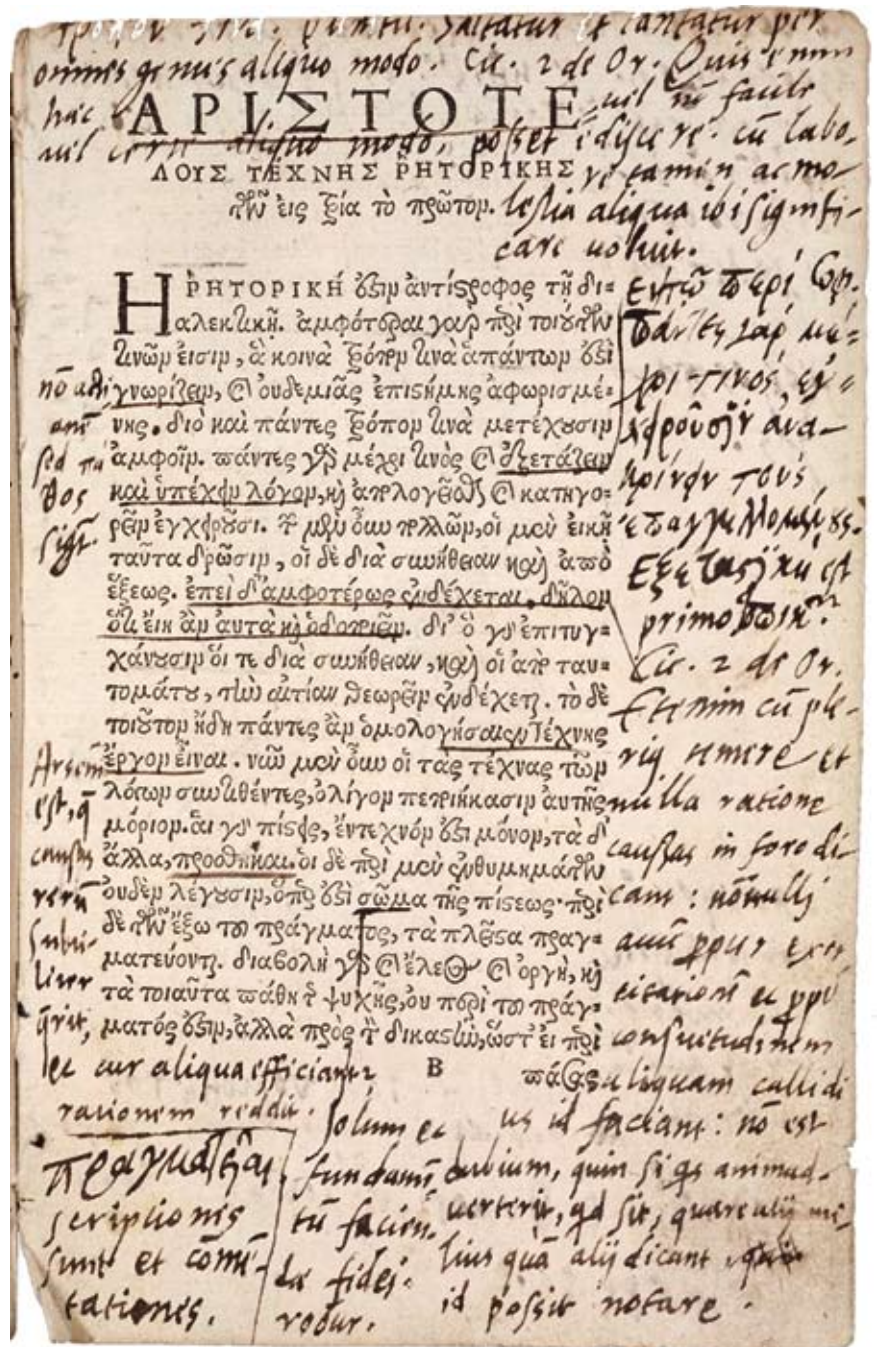 omnes genus aliquo modo. Cic. 2 de Or. Quis enim
hac
ΑΡΙΣΤΟΤΕ
uel nō facile
uel certe aliquo modo, posset ediscere. cū labo-
ΛΟΥΣ ΤΕΧΝΗΣ ΡΗΤΟΡΙΚΗΣ
re tamen ac mo-
τῶν εἰς τρία τὸ πρῶτον.
lestia aliqua ibi signifi-
care uoluit.
Η ΡΗΤΟΡΙΚΗ ἐστιν ἀντίστροφος τῇ δι-
αλεκτικῇ. ἀμφότεραι γὰρ περὶ τοιούτων
τινῶν εἰσιν, ἃ κοινὰ τρόπον τινὰ ἁπάντων ἐστὶ
γνωρίζειν, καὶ οὐδεμιᾶς ἐπιστήμης ἀφωρισμέ-
νης. διὸ καὶ πάντες τρόπον τινὰ μετέχουσιν
ἀμφοῖν. πάντες γὰρ μέχρι τινὸς καὶ ἐξετάζειν
καὶ ὑπέχειν λόγον, καὶ ἀπολογεῖσθαι καὶ κατηγο-
ρεῖν ἐγχειροῦσι. τῶν μὲν οὖν πολλῶν, οἱ μὲν εἰκῆ
ταῦτα δρῶσιν, οἱ δὲ διὰ συνήθειαν καὶ ἀπὸ
ἕξεως. ἐπεὶ δ' ἀμφοτέρως ἐνδέχεται, δῆλον
ὅτι εἴη ἂν αὐτὰ καὶ ὁδοποιεῖν. δι' ὃ γὰρ ἐπιτυγ-
χάνουσιν οἵ τε διὰ συνήθειαν, καὶ οἱ ἀπὸ ταυ-
τομάτου, τὴν αἰτίαν θεωρεῖν ἐνδέχεται. τὸ δὲ
τοιοῦτον ἤδη πάντες ἂν ὁμολογήσαιεν τέχνης
ἔργον εἶναι. νῦν μὲν οὖν οἱ τὰς τέχνας τῶν
λόγων συντιθέντες, ὀλίγον πεποιήκασιν αὐτῆς
μόριον. αἱ γὰρ πίστεις, ἔντεχνόν ἐστι μόνον, τὰ δ'
ἄλλα, προσθῆκαι. οἱ δὲ περὶ μὲν ἐνθυμημάτων
οὐδὲν λέγουσιν, ὅπερ ἐστὶ σῶμα τῆς πίστεως. περὶ
δὲ τῶν ἔξω τοῦ πράγματος, τὰ πλεῖστα πραγ-
ματεύονται. διαβολὴ γὰρ καὶ ἔλεος καὶ ὀργὴ, καὶ
τὰ τοιαῦτα πάθη τῆς ψυχῆς, οὐ περὶ τοῦ πράγ-
ματός ἐστιν, ἀλλὰ πρὸς τὸν δικαστὴν, ὥστ' εἰ περὶ
B
πάσας
sed πά
θος
sigt.
Artem
est, q̄
causas
rerū
subti-
liter
q̄rit,
et cur aliqua efficiant
rationem reddit.
πάντες γὰρ μέ-
χρι τινὸς, ἐγ-
χειροῦσιν ἀνα-
κρίνειν τους
ἐπαγγελλομένους.
primo
Cic. 2 de Or.
Etenim cū ple-
riq; temere et
nulla ratione
caussas in foro di-
cant: nōnulli
autē ppter exer
citationē et ppt
consuetudinem
aliquam callidi
us id faciant: nō est
dubium, quin si qs animad-
uerterit, qd sit, quare alij me-
lius quā alij dicant
id possit notare.
scriptiones
sunt et cōmē-
tationes.
Solum et
fundamē
tū facien-
dæ fidei